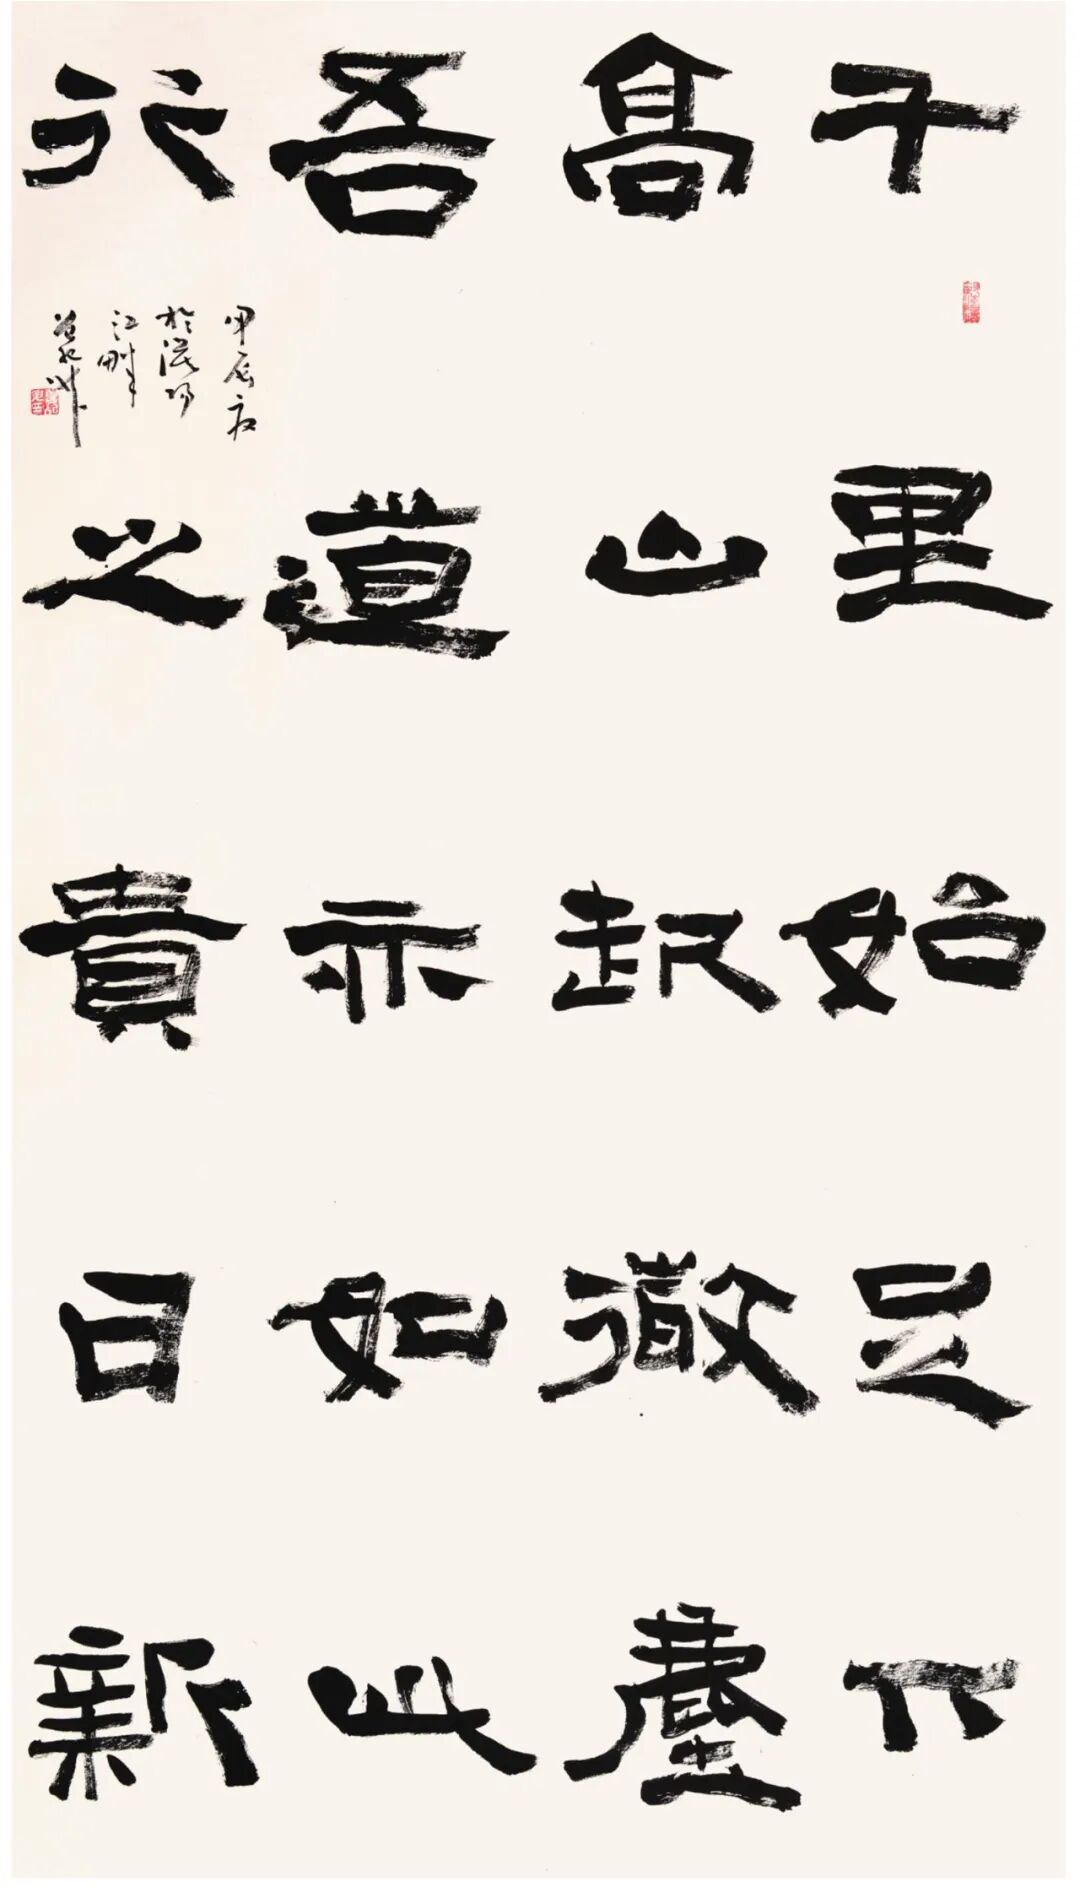 千里始足下
高山起微塵
吾道亦如此
行之貴日新
甲辰
於
江畔